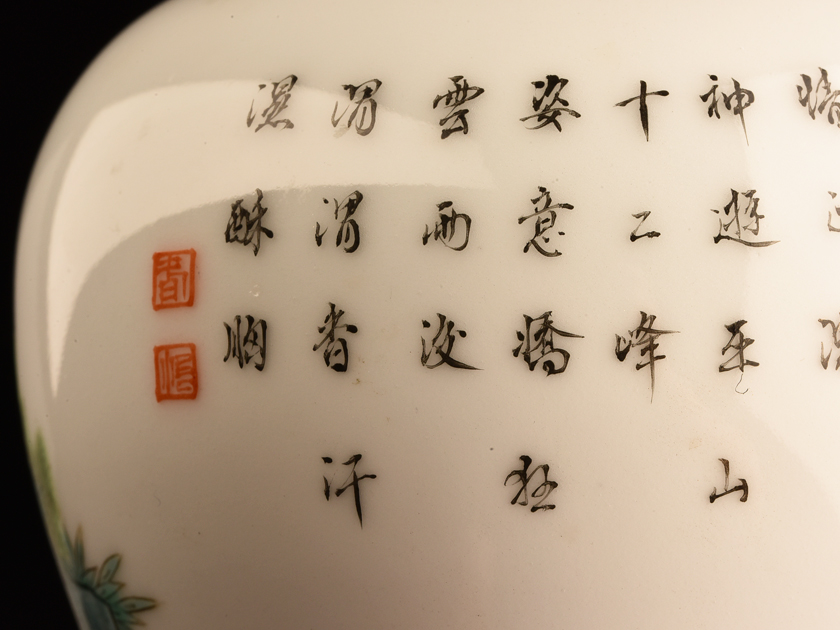 神遊巫山
十二峰
姿意嬌狂
雲雨後
涓涓香汗
濕酥胸